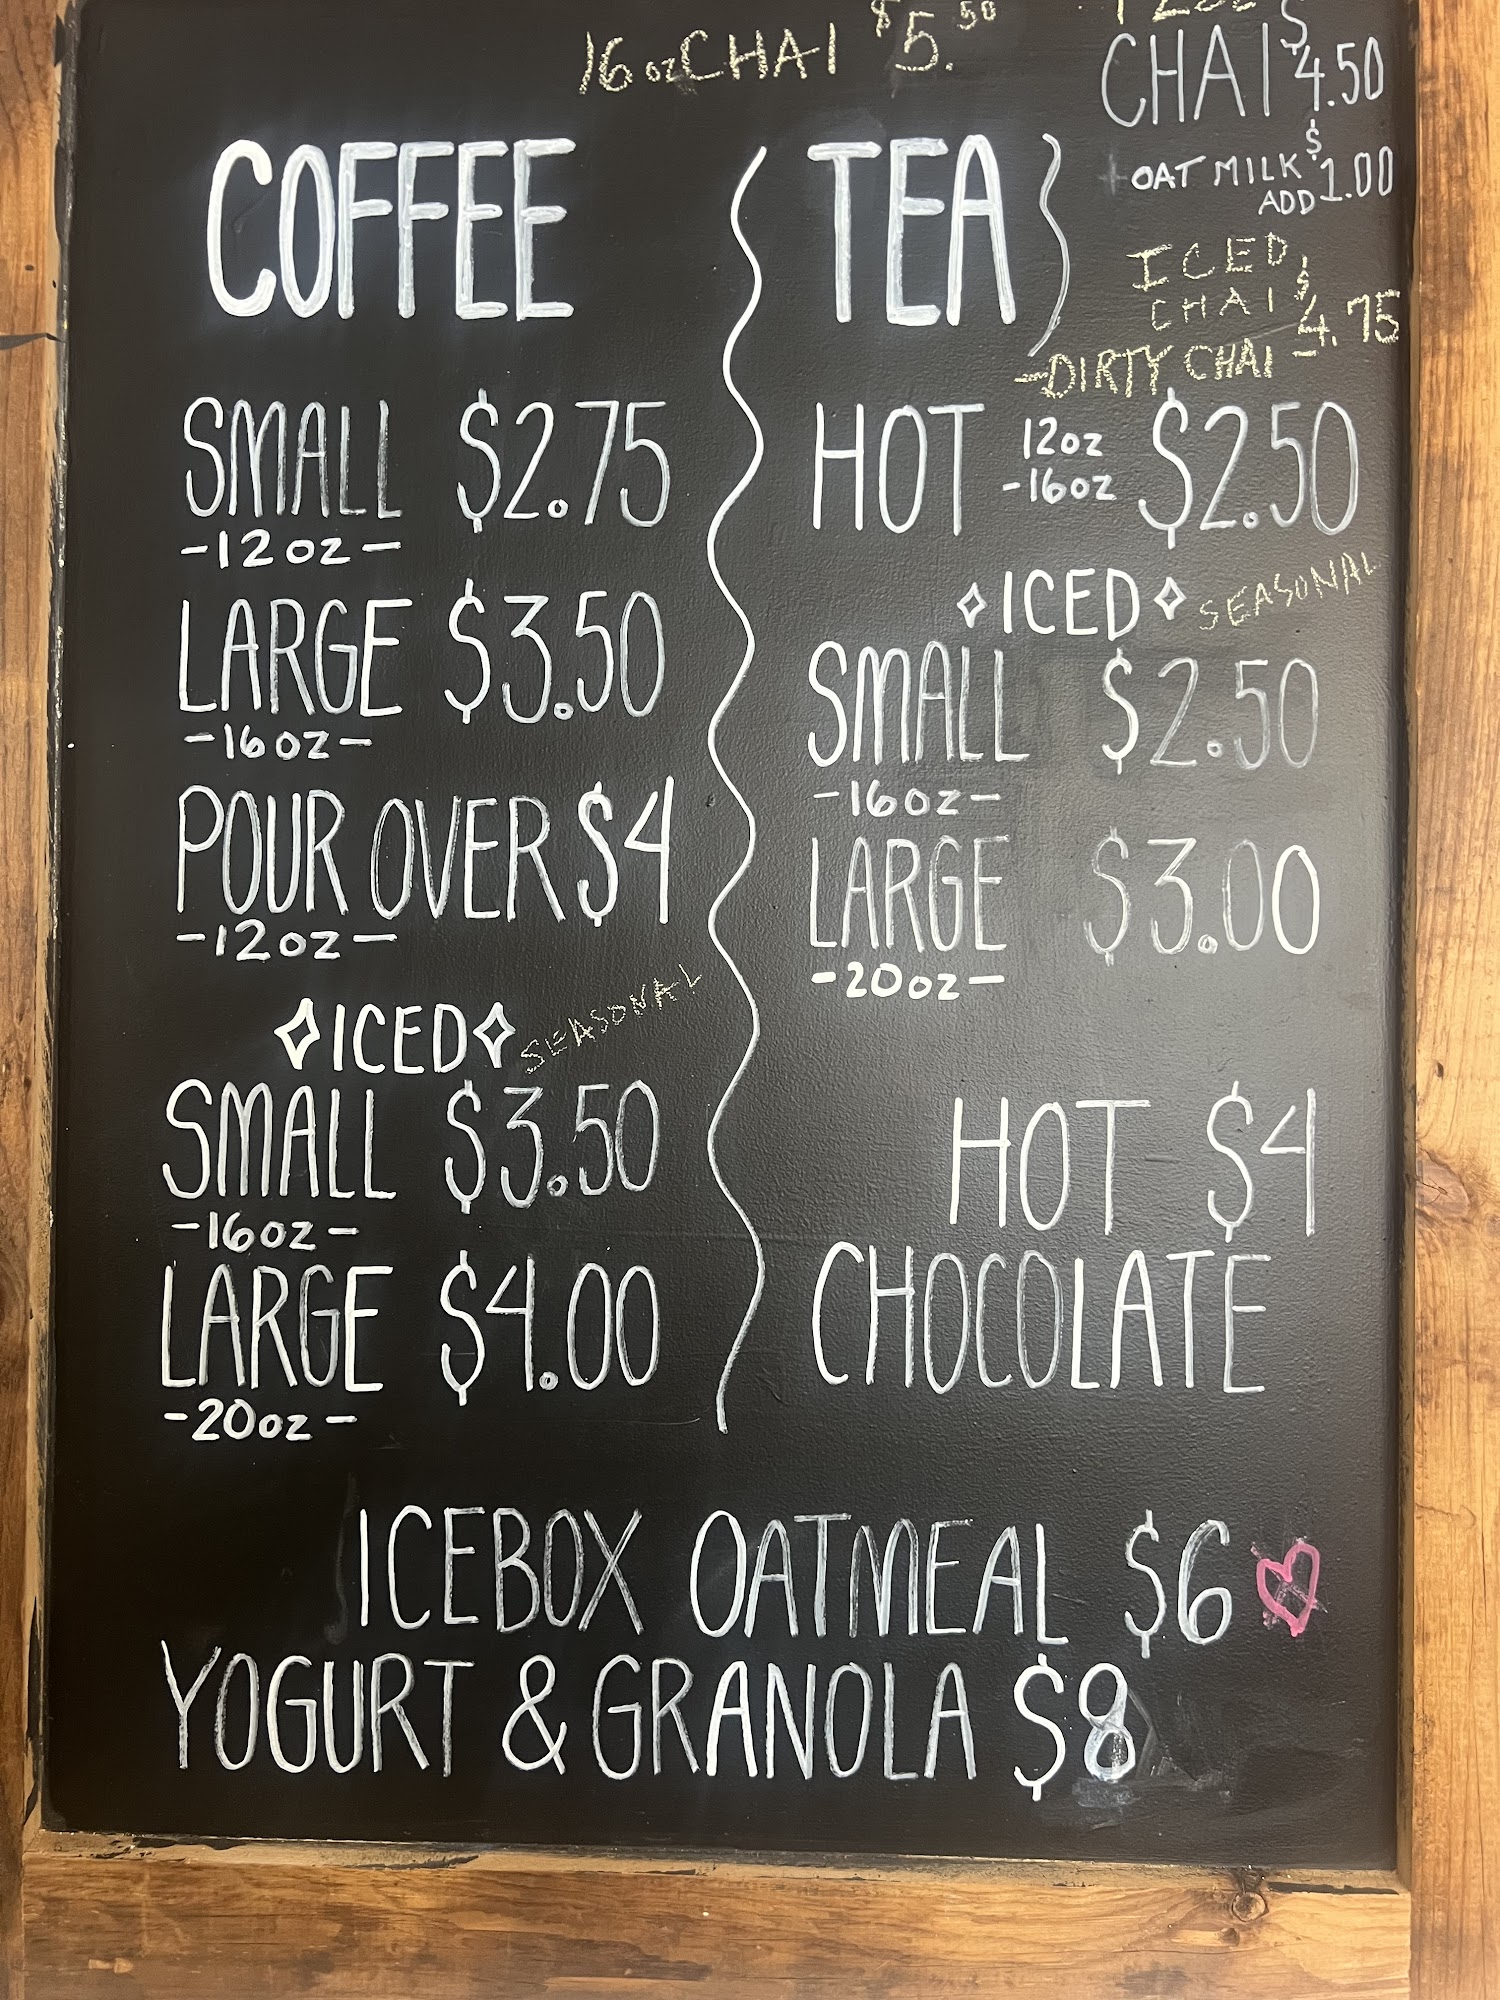 16oz CHAI $5.50
CHAI $4.50
+ OAT MILK $1.00
ADD
ICED
CHAI $4.75
-DIRTY CHAI -
COFFEE
SMALL $2.75
-12oz-
LARGE $3.50
-16oz-
POUR OVER $4
-12oz-
ICED SEASONAL
SMALL $3.50
-16oz-
LARGE $4.00
-20oz-
TEA
HOT 12oz -16oz $2.50
ICED SEASONAL
SMALL $2.50
-16oz-
LARGE $3.00
-20oz-
HOT $4
CHOCOLATE
ICEBOX OATMEAL $6
YOGURT & GRANOLA $8